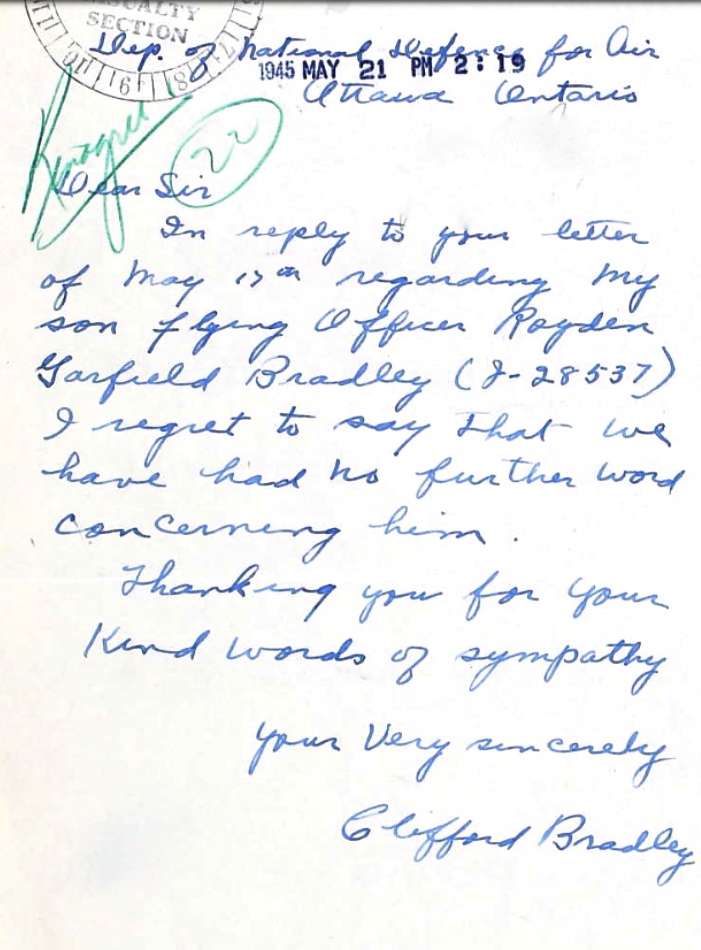 CASUALTY
SECTION
Dep. of National Defence for Air
1945 MAY 21 PM 2:19
Ottawa Ontario
22
Dear Sir
In reply to your letter
of May 17th regarding my
son flying Officer Royden
Garfield Bradley (J-28537)
I regret to say that we
have had no further word
concerning him.
Thanking you for your
Kind words of sympathy
your Very sincerely
Clifford Bradley